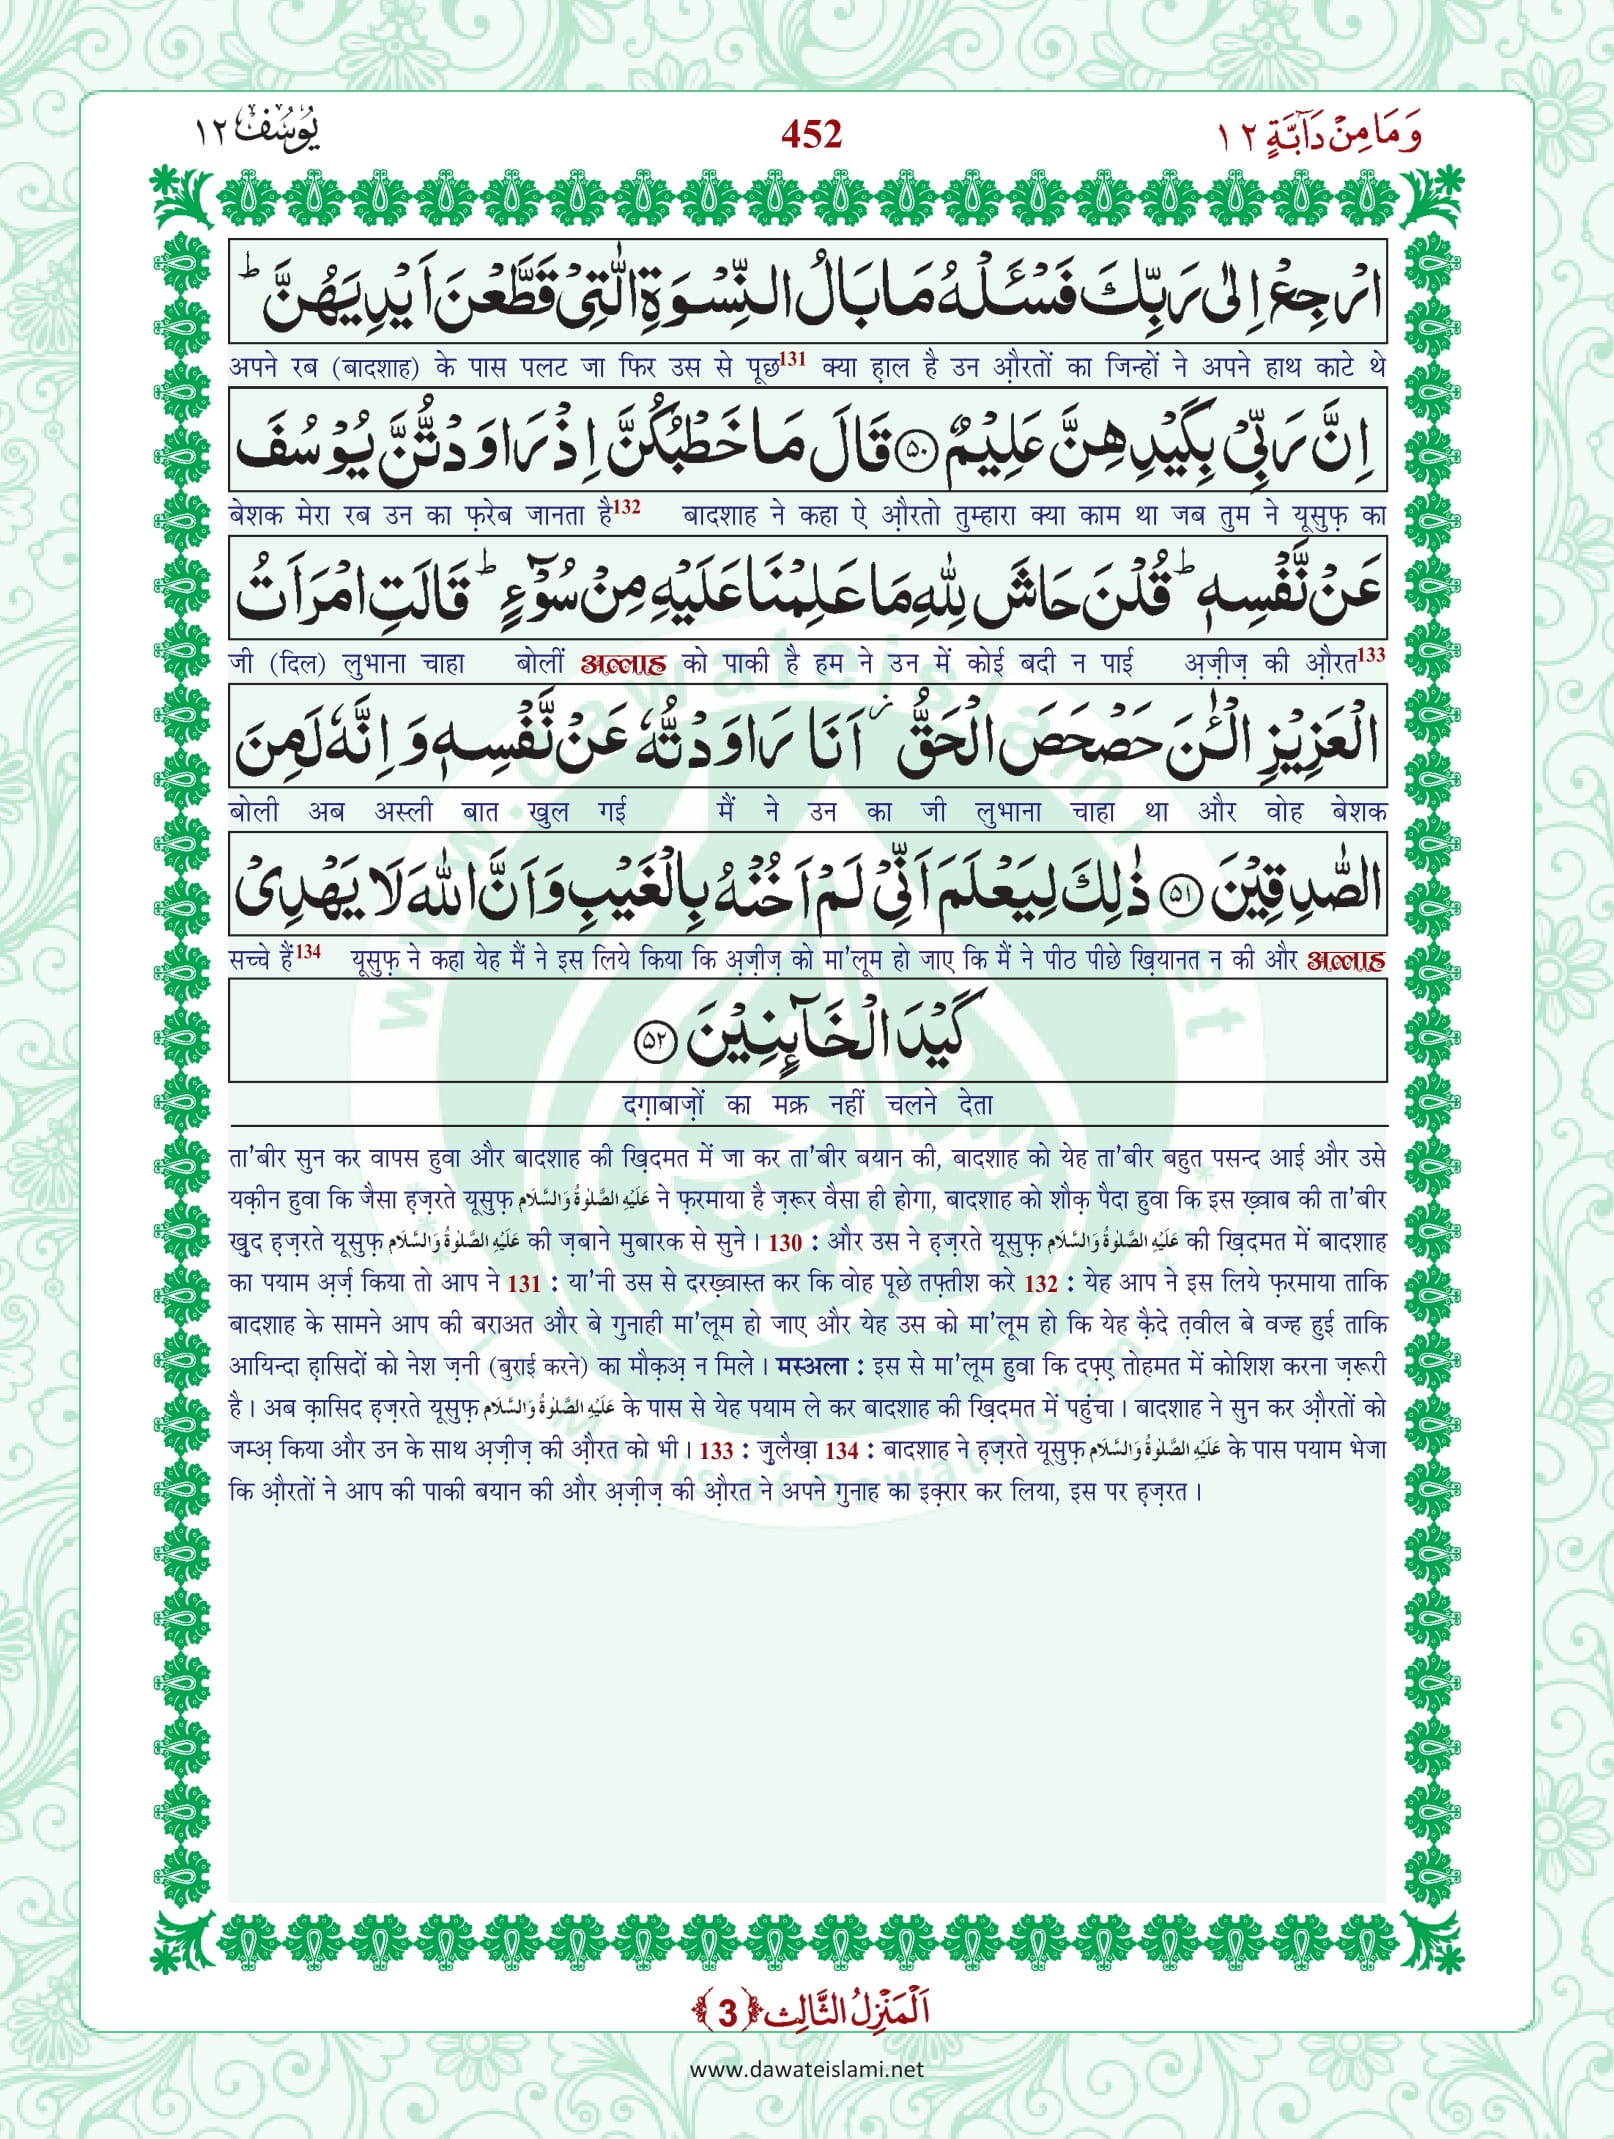 وَمَا مِنْ دَآبَّةٍ ١٢ 452 يُوْسُف ١٢
ارْجِعْ اِلٰى رَبِّكَ فَسْـَٔلْهُ مَا بَالُ النِّسْوَةِ الّٰتِیْ قَطَّعْنَ اَیْدِیَهُنَّ ؕ
अपने रब (बादशाह) के पास पलट जा फिर उस से पूछ131 क्या ह़ाल है उन औ़रतों का जिन्हों ने अपने हाथ काटे थे
اِنَّ رَبِّیْ بِكَیْدِهِنَّ عَلِیْمٌ ﴿۵۰﴾ قَالَ مَا خَطْبُكُنَّ اِذْ رَاوَدْتُّنَّ یُوْسُفَ
बेशक मेरा रब उन का फ़रेब जानता है132 बादशाह ने कहा ऐ औ़रतो तुम्हारा क्या काम था जब तुम ने यूसुफ़ का
عَنْ نَّفْسِهٖ ؕ قُلْنَ حَاشَ لِلّٰهِ مَا عَلِمْنَا عَلَیْهِ مِنْ سُوْٓءٍ ؕ قَالَتِ امْرَاَتُ
जी (दिल) लुभाना चाहा बोलीं अल्लाह को पाकी है हम ने उन में कोई बदी न पाई अ़ज़ीज़ की औ़रत133
الْعَزِیْزِ الْـٰٔنَ حَصْحَصَ الْحَقُّ ۫ اَنَا رَاوَدْتُّهٗ عَنْ نَّفْسِهٖ وَ اِنَّهٗ لَمِنَ
बोली अब अस्ली बात खुल गई मैं ने उन का जी लुभाना चाहा था और वोह बेशक
الصّٰدِقِیْنَ ﴿۵۱﴾ ذٰلِكَ لِیَعْلَمَ اَنِّیْ لَمْ اَخُنْهُ بِالْغَیْبِ وَ اَنَّ اللّٰهَ لَا یَهْدِیْ
सच्चे हैं134 यूसुफ़ ने कहा येह मैं ने इस लिये किया कि अ़ज़ीज़ को मा'लूम हो जाए कि मैं ने पीठ पीछे ख़ियानत न की और अल्लाह
كَیْدَ الْخَآىٕنِیْنَ ﴿۵۲﴾
दग़ाबाज़ों का मक्र नहीं चलने देता
ता'बीर सुन कर वापस हुवा और बादशाह की ख़िदमत में जा कर ता'बीर बयान की, बादशाह को येह ता'बीर बहुत पसन्द आई और उसे
यक़ीन हुवा कि जैसा ह़ज़रते यूसुफ़ عَلَيْهِ الصَّلٰوةُ وَالسَّلَام ने फ़रमाया है ज़रूर वैसा ही होगा, बादशाह को शौक़ पैदा हुवा कि इस ख़्वाब की ता'बीर
खु़द ह़ज़रते यूसुफ़ عَلَيْهِ الصَّلٰوةُ وَالسَّلَام की ज़बाने मुबारक से सुने। 130 : और उस ने ह़ज़रते यूसुफ़ عَلَيْهِ الصَّلٰوةُ وَالسَّلَام की ख़िदमत में बादशाह
का पयाम अ़र्ज़ किया तो आप ने 131 : या'नी उस से दरख़्वास्त कर कि वोह पूछे तफ़्तीश करे 132 : येह आप ने इस लिये फ़रमाया ताकि
बादशाह के सामने आप की बराअत और बे गुनाही मा'लूम हो जाए और येह उस को मा'लूम हो कि येह क़ैदे त़वील बे वज्ह हुई ताकि
आयिन्दा ह़ासिदों को नेश ज़नी (बुराई करने) का मौक़अ़ न मिले। मस्अला : इस से मा'लूम हुवा कि दफ़्ए़ तोहमत में कोशिश करना ज़रूरी
है। अब क़ासिद ह़ज़रते यूसुफ़ عَلَيْهِ الصَّلٰوةُ وَالسَّلَام के पास से येह पयाम ले कर बादशाह की ख़िदमत में पहुंचा। बादशाह ने सुन कर औ़रतों को
जम्अ़ किया और उन के साथ अ़ज़ीज़ की औ़रत को भी। 133 : ज़ुलैख़ा 134 : बादशाह ने ह़ज़रते यूसुफ़ عَلَيْهِ الصَّلٰوةُ وَالسَّلَام के पास पयाम भेजा
कि औ़रतों ने आप की पाकी बयान की और अ़ज़ीज़ की औ़रत ने अपने गुनाह का इक़्रार कर लिया, इस पर ह़ज़रत।
اَلْمَنْزِلُ الثَّالِث ﴿3﴾
www.dawateislami.net